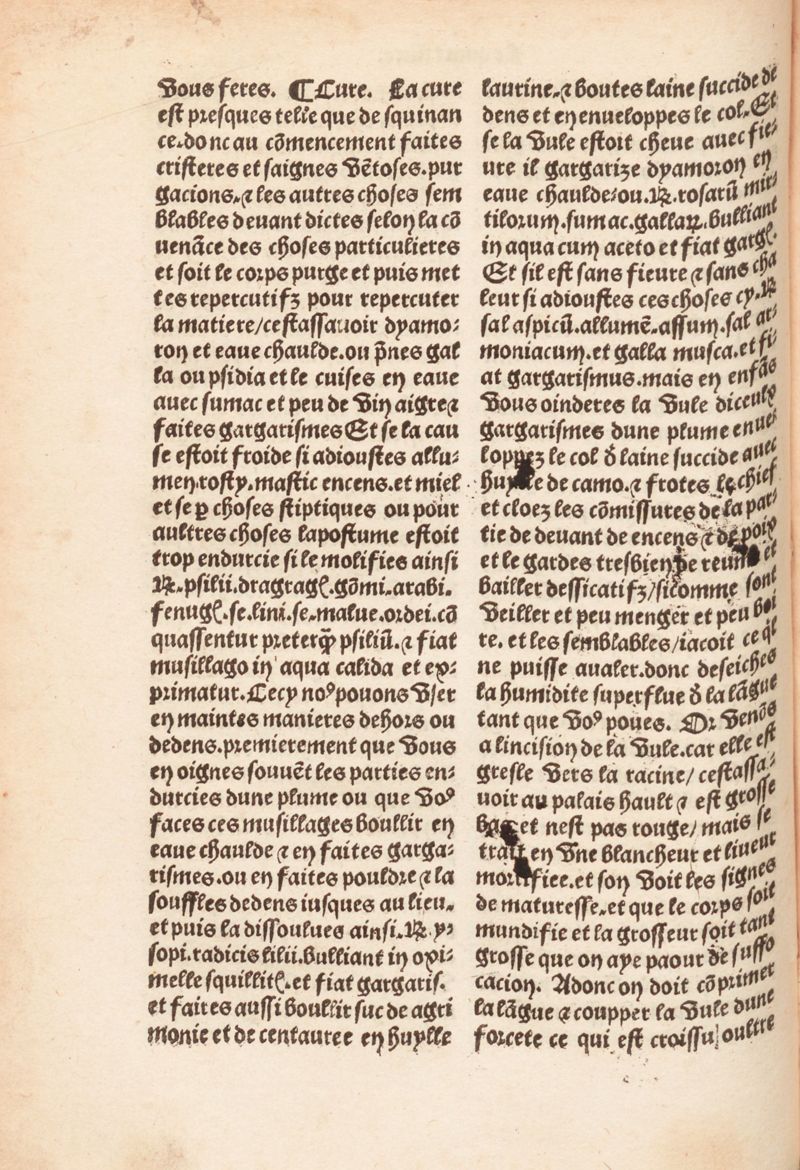 Vous feres. ¶ Cure. La cure
est presques telle que de squinan
ce. donc au cōmencement faites
cristeres et saignes vētoses. pur
gacions. ⁊ les autres choses sem
blables devant dictes selon la cō
venāce des choses particulieres
et soit le corps purge et puis met
tes repercutifz pour repercuter
la matiere/cestassavoir dyamo⸗
ron et eaue chaulde. ou p̄nes gal
la ou psidia et le cuises en eaue
avec sumac et peu de vin aigre ⁊
faites gargarismes Et se la cau
se estoit froide si adioustes allu⸗
men. rosty. mastic encens. et miel
et se ꝑ choses stiptiques ou pour
aultres choses lapostume estoit
trop endurcie si le molifies ainsi
℞. psilii. dragagl̄. gōmi. arabi.
fenugl̄. se. lini. se. malue. ordei. cō
quassentur preterqȝ psiliū. ⁊ fiat
musillago in aqua calida et ex⸗
primatur. Cecy noꝰ pouons user
en maintes manieres dehors ou
dedens. premierement que vous
en oignes souvēt les parties en⸗
durcies dune plume ou que voꝰ
faces ces musillages boullir en
eaue chaulde ⁊ en faites garga⸗
rismes. ou en faites pouldre ⁊ la
souffles dedens iusques au lieu.
et puis la dissoulues ainsi. ℞. y⸗
sopi. radicis lilii. bulliant in oxi⸗
melle squillitl̄. et fiat gargaris.
et faites aussi boullir suc de agri
monie et de centauree en huylle
laurine. ⁊ boutes laine succide de
dens et en enveloppes le col. Et
se la vule estoit cheue avec fie⸗
vre il gargarize dyamoron en
eaue chaulde. ou. ℞. rosarū mir⸗
tilorum. sumac. gallaꝝ. bulliant
in aqua cum aceto et fiat gargl̄.
Et sil est sans fieure ⁊ sans cha
leur si adioustes ces choses cy. ℞
sal aspicū. allumē. assum. sal ar⸗
moniacum. et galla musca. et fi⸗
at gargarismus. mais en enfās
vous oinderes la vule diceulx
gargarismes dune plume enue⸗
loppez le col ď laine succide avec
huylle de camo. ⁊ frotes le chief
et cloez les cōmissures de la par⸗
tie de devant de encens ⁊ de poix
et le gardes tresbien de et
bailler dessicatifz/si comme sont
veiller et peu menger et peu boi
re. et les semblables/iacoit ce qͥ
ne puisse avaler. donc deseiches
la humidite superflue ď la lāgue
tant que voꝰ poues. Or venōs
a lincision de la vule. car elle est
gresle vers la racine/ cestassa⸗
voir au palais hault ⁊ est grosse
bas et nest pas rouge/ mais se
trait en une blancheur et liveur
mortifiee. et son voit les signes
de maturesse. et que le corps soit
mundifie et la grosseur soit tant
grosse que on aye paour de suffo
cacion. Adonc on doit cōprimer
la lāgue ⁊ coupper la vule dune
forcete ce qui est croissu oultre